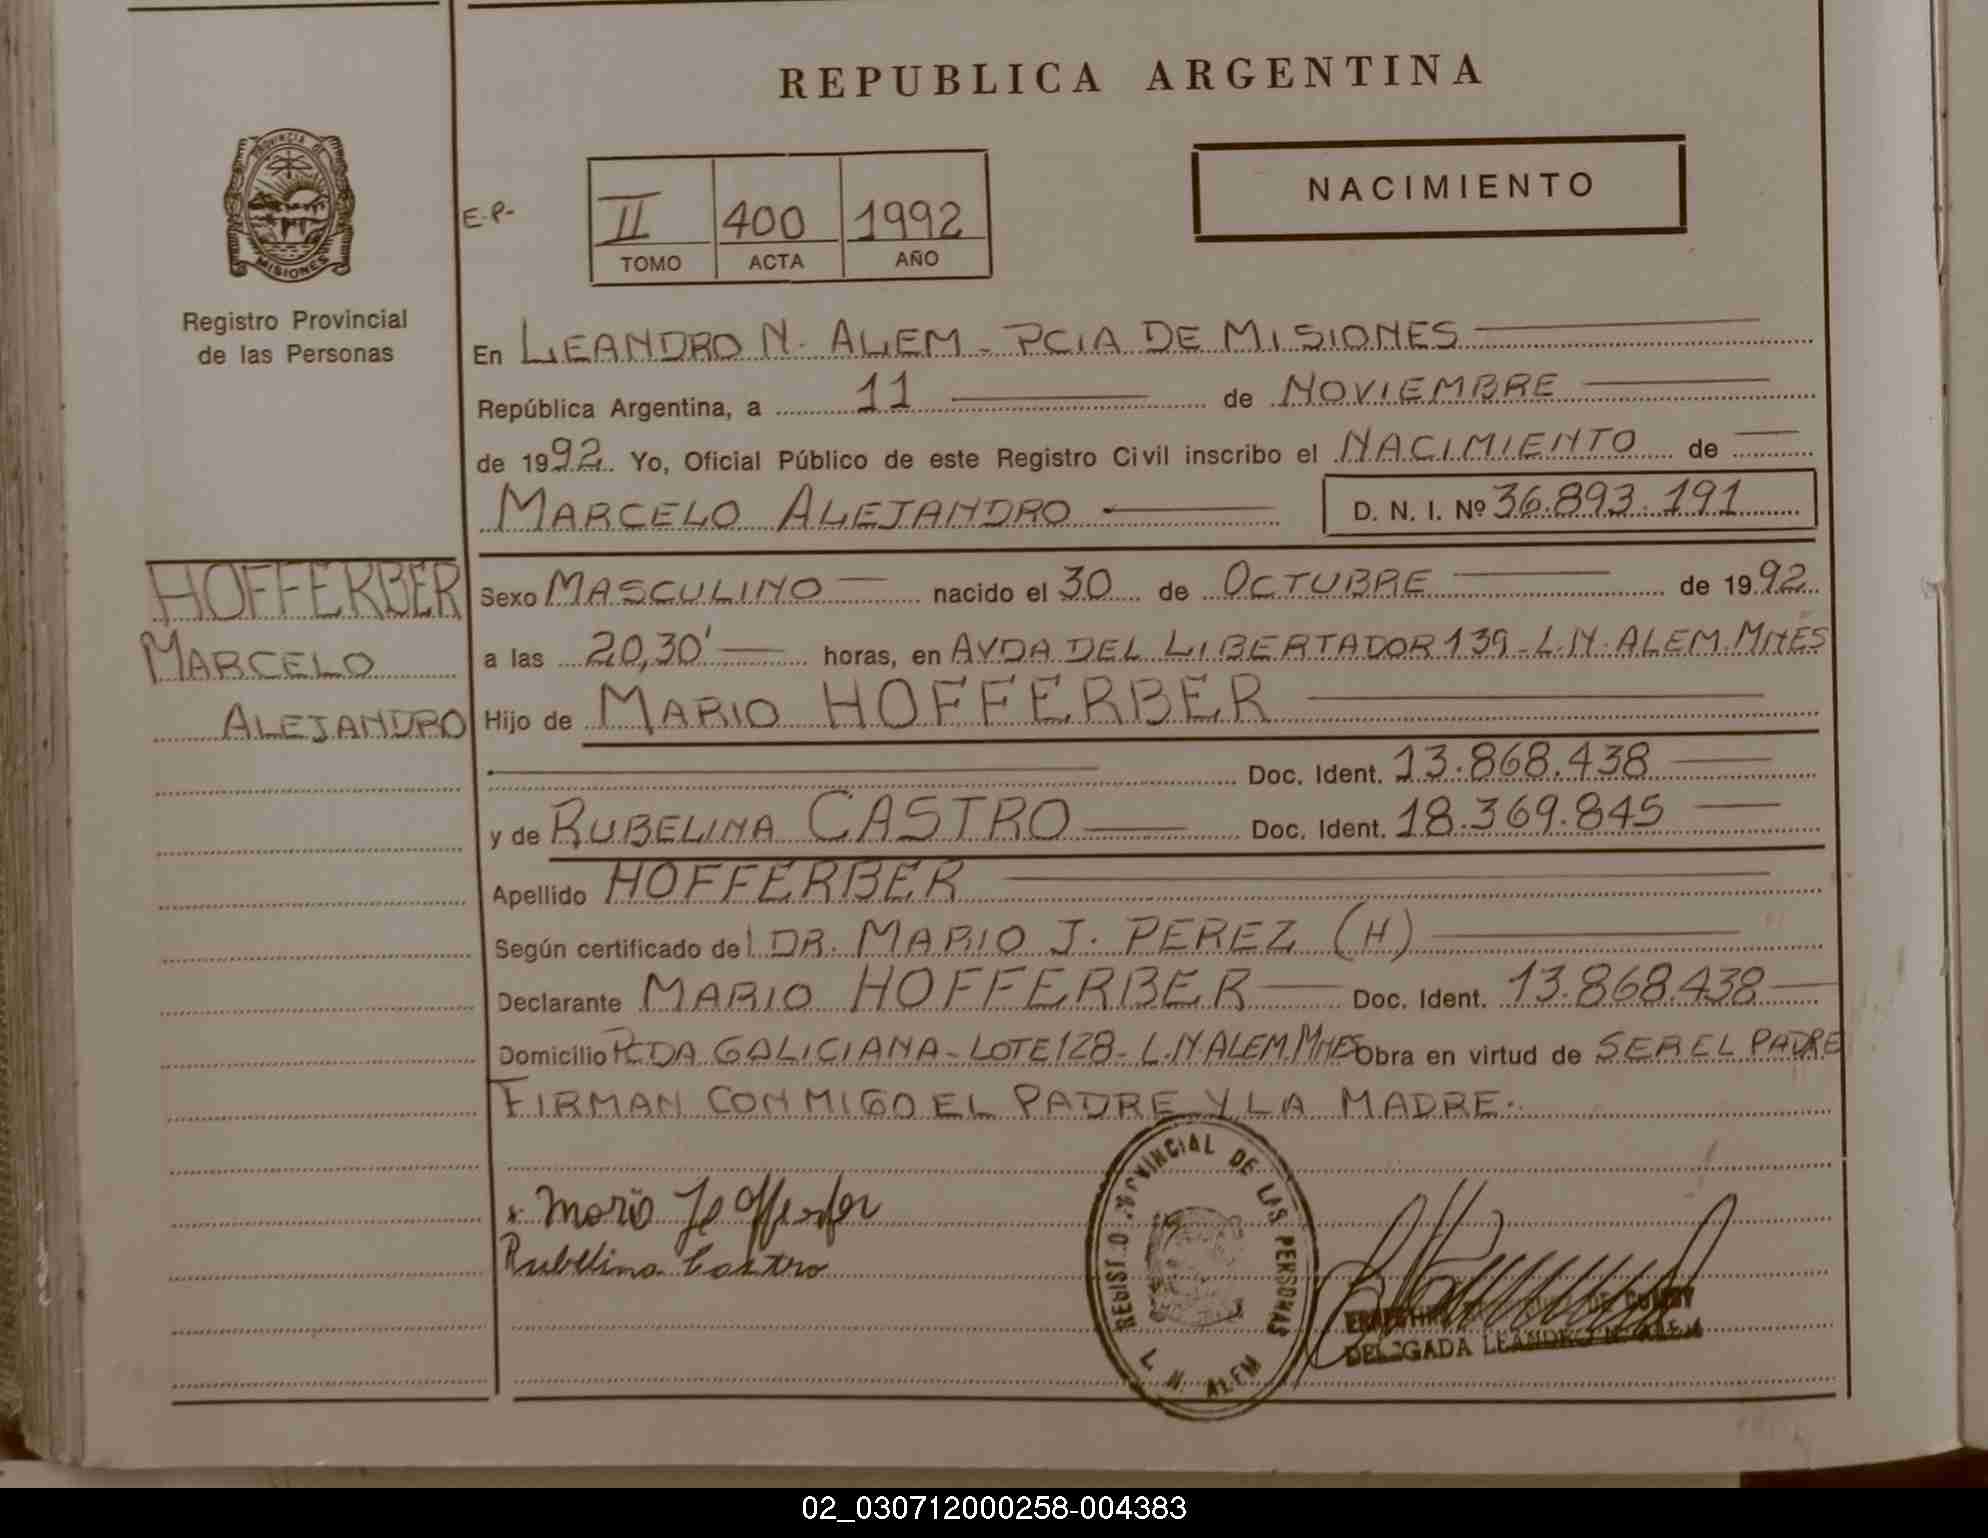 REPUBLICA ARGENTINA
PROVINCIA DE
MISIONES
Registro Provincial
de las Personas
NACIMIENTO
E.P.-
II 400 1992
TOMO ACTA AÑO
En LEANDRO N. ALEM - PCIA DE MISIONES
República Argentina, a 11 de NOVIEMBRE
de 1992. Yo, Oficial Público de este Registro Civil inscribo el NACIMIENTO de
MARCELO ALEJANDRO D. N. I. Nº 36.893.191
HOFFERBER
MARCELO
ALEJANDRO
Sexo MASCULINO nacido el 30 de OCTUBRE de 1992
a las 20,30' horas, en AVDA DEL LIBERTADOR 139 - L.N. ALEM. MNES
Hijo de MARIO HOFFERBER
Doc. Ident. 13.868.438
y de RUBELINA CASTRO Doc. Ident. 18.369.845
Apellido HOFFERBER
Según certificado del DR. MARIO J. PEREZ (H)
Declarante MARIO HOFFERBER Doc. Ident. 13.868.438
Domicilio PCDA GALICIANA - LOTE 128 - L.N ALEM. MNES Obra en virtud de SER EL PADRE
FIRMAN CONMIGO EL PADRE Y LA MADRE.
Mario Hofferber
Rubelina Castro
REGISTRO PROVINCIAL DE LAS PERSONAS
L. N. ALEM
DELEGADA LEANDRO N. ALEM
02_030712000258-004383